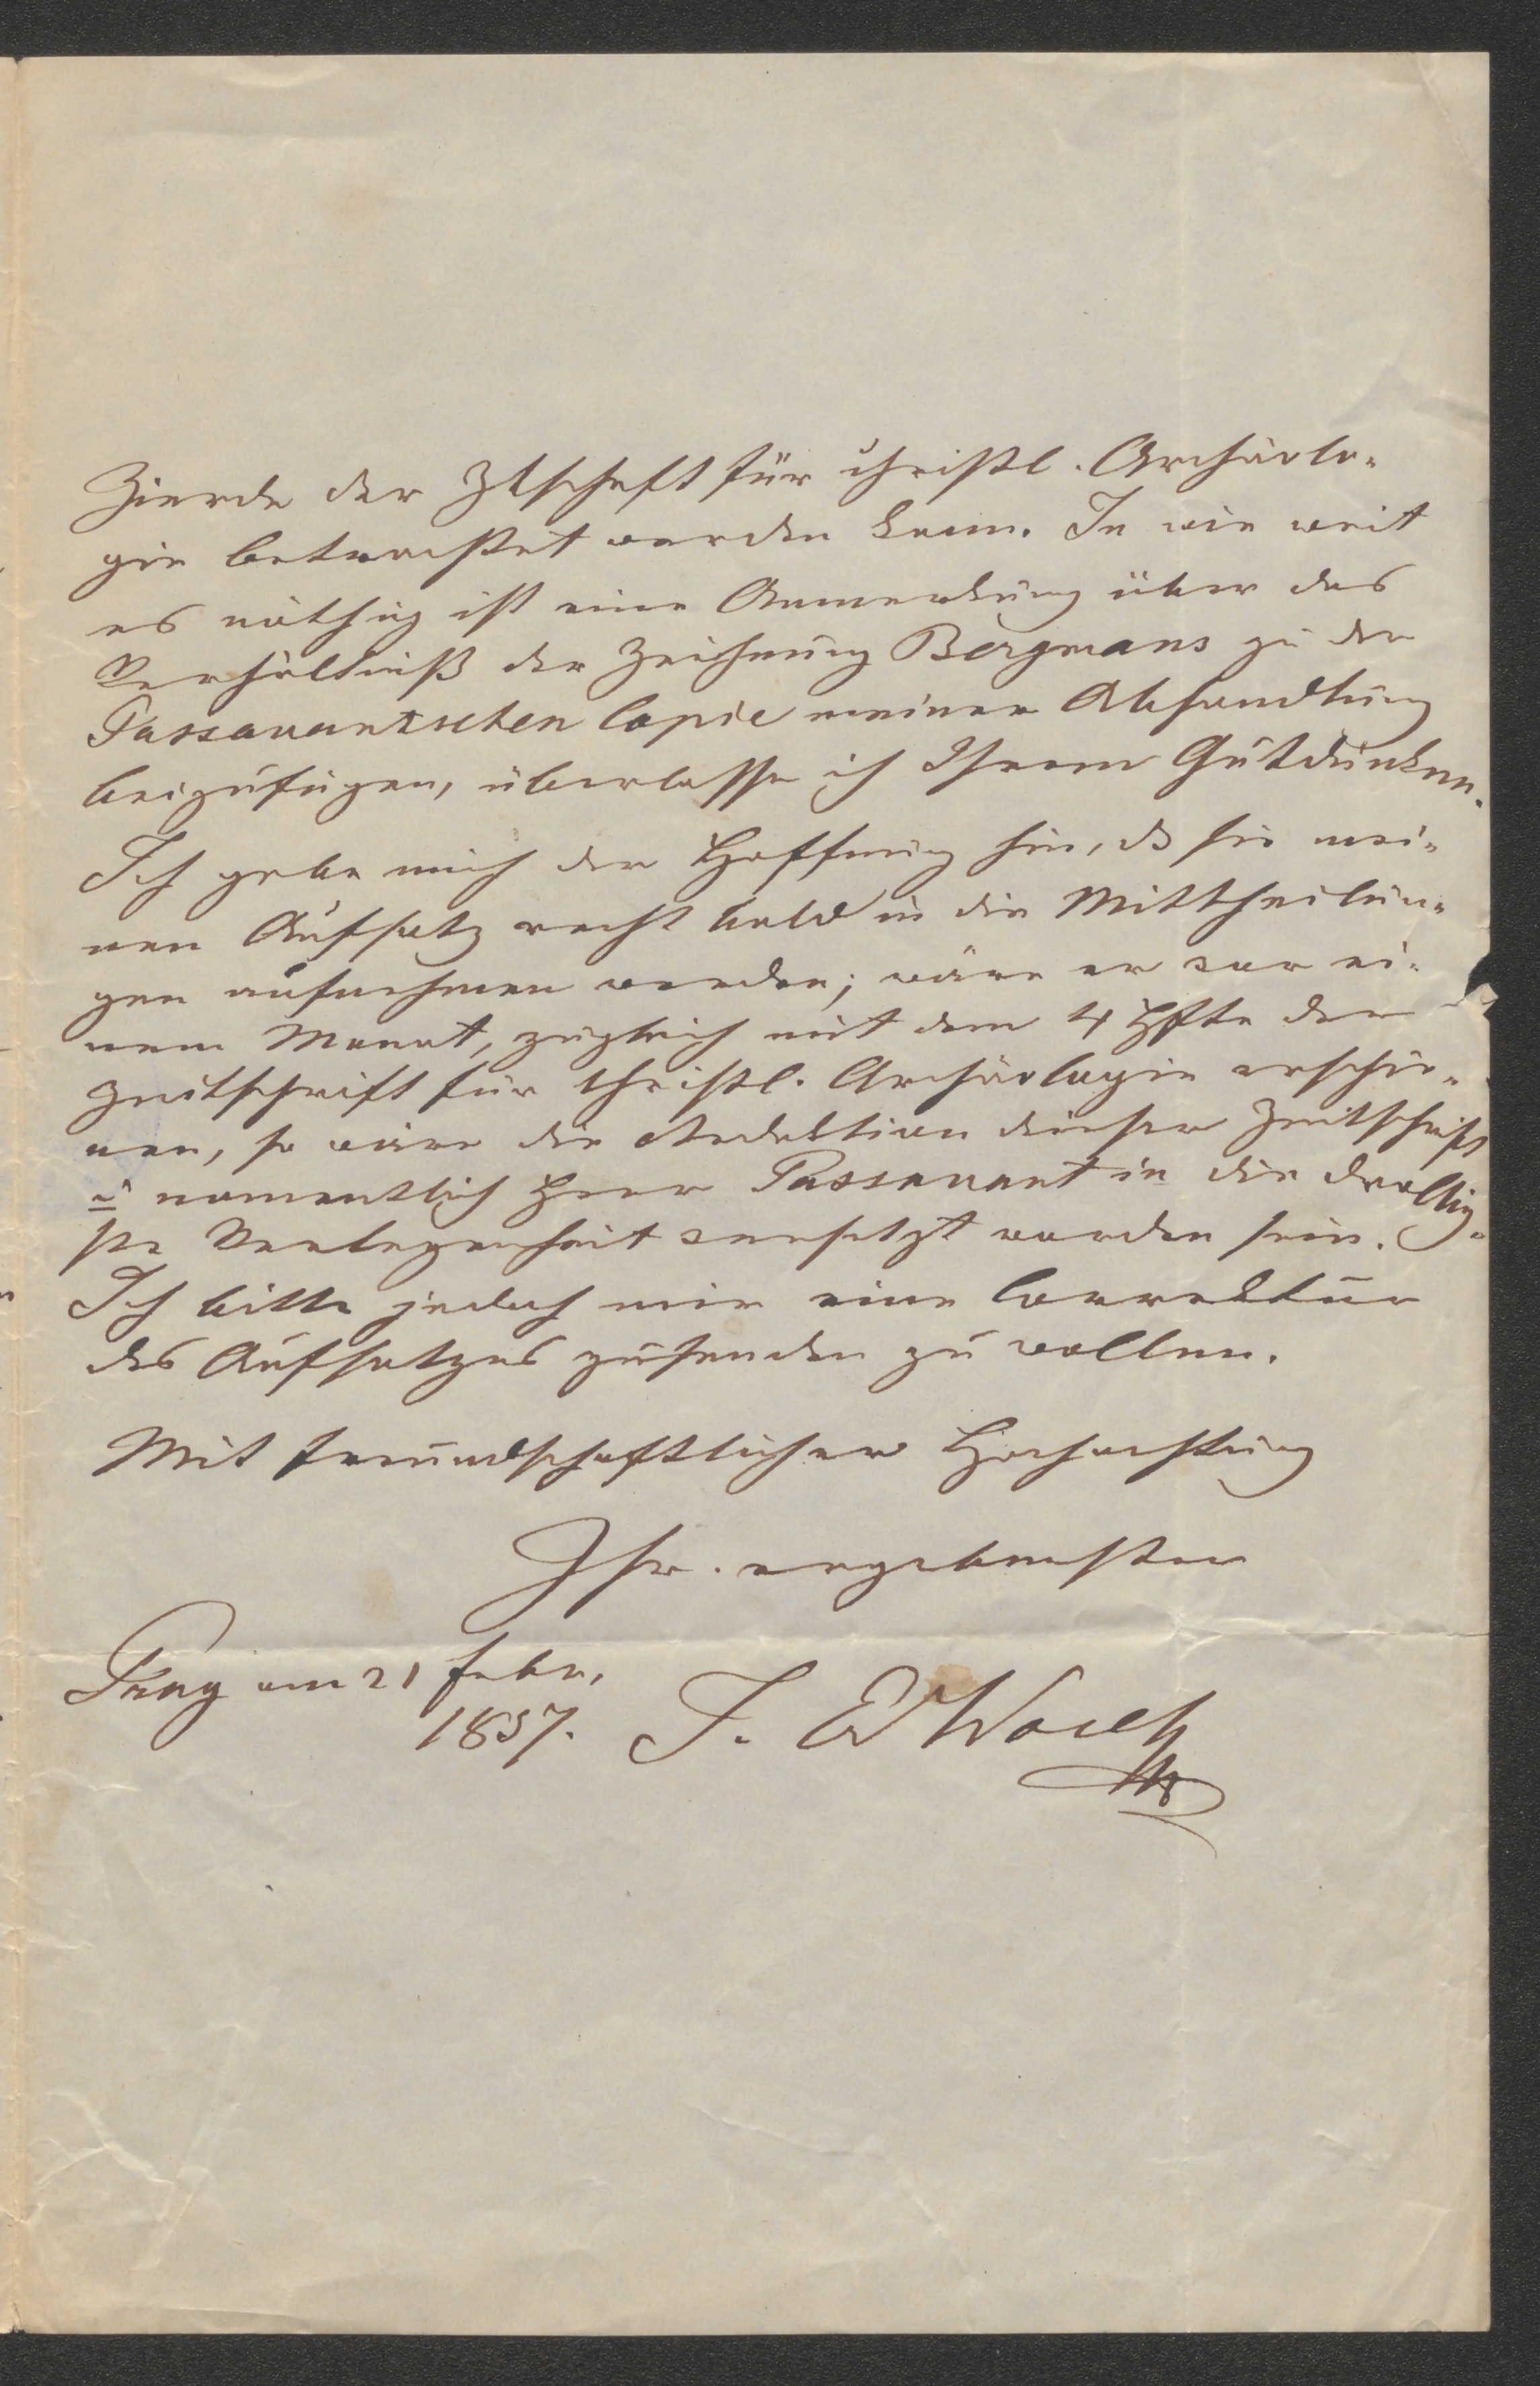 Zierde der Ztschrift für christl. Archäolo-
gie betrachtet werden kann. In wie weit
es nöthig ist eine Anmerkung über das
Verhältniß der Zeichnung Bergmans zu der
Passavantschen Copie meiner Abhandlung
beizufügen, überlasse ich Ihrem Gutdünken.
Ich gebe mich der Hoffnung hin, dß sie mei-
nen Aufsatz recht bald in die Mittheilun-
gen aufnehmen werden; wäre er vor ei-
nem Monat, zugleich mit dem 4 Hfte der
Zeitschrift für christl. Archäologie erschie-
nen, so wäre die Redaktion dieser Zeitschrift
u namentlich Herr Passavant in die drollig-
ste Verlegenheit versetzt worden sein.
Ich bitte jedoch mir eine Correktur
des Aufsatzes zusenden zu wollen.
Mit freundschaftlicher Hochachtung
Ihr. ergebenster
Prag am 21 Febr.
1857. J. E Wocel